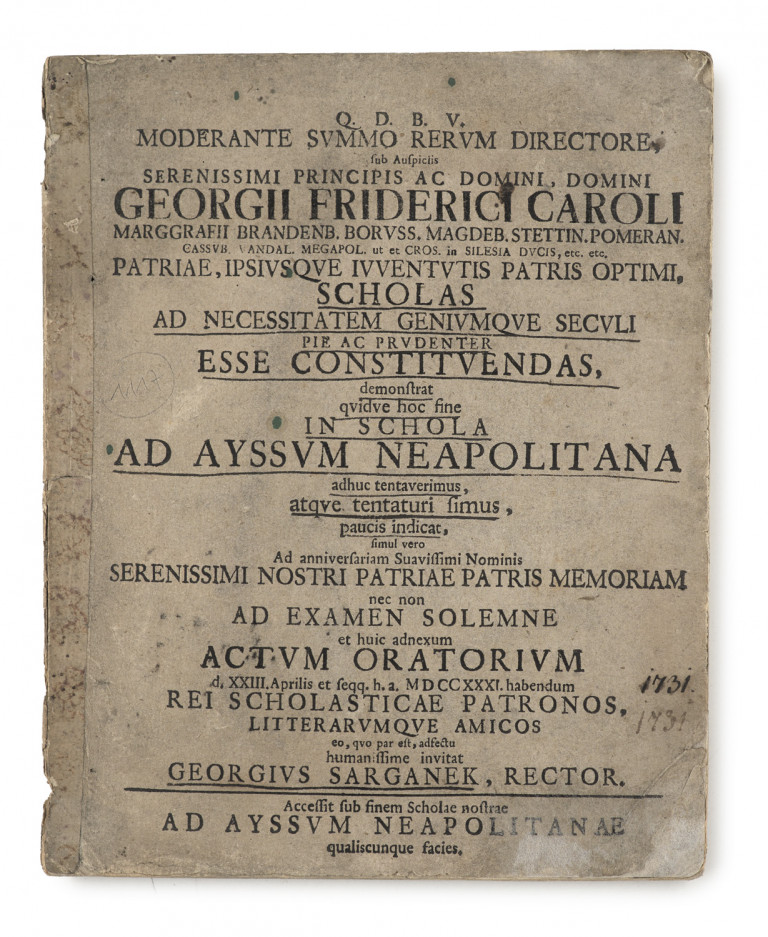 Q. D. B. V.
MODERANTE SVMMO RERVM DIRECTORE,
sub Auspiciis
SERENISSIMI PRINCIPIS AC DOMINI, DOMINI
GEORGII FRIDERICI CAROLI
MARGGRAFII BRANDENB. BORVSS. MAGDEB. STETTIN. POMERAN.
CASSVB. VANDAL. MEGAPOL. ut et CROS. in SILESIA DVCIS, etc. etc.
PATRIAE, IPSIVSQVE IVVENTVTIS PATRIS OPTIMI,
SCHOLAS
AD NECESSITATEM GENIVMQVE SECVLI
PIE AC PRVDENTER
ESSE CONSTITVENDAS,
demonſtrat
qvidve hoc fine
IN SCHOLA
AD AYSSVM NEAPOLITANA
adhuc tentaverimus,
atqve tentaturi ſimus,
paucis indicat,
ſimul vero
Ad anniverſariam Suaviſſimi Nominis
SERENISSIMI NOSTRI PATRIAE PATRIS MEMORIAM
nec non
AD EXAMEN SOLEMNE
et huic adnexum
ACTVM ORATORIVM
d. XXIII. Aprilis et ſeqq. h. a. MDCCXXXI. habendum
1731.
REI SCHOLASTICAE PATRONOS,
LITTERARVMQVE AMICOS
1731
eo, qvo par eſt, adfectu
humaniſſime invitat
GEORGIVS SARGANEK, RECTOR.
Acceſſit ſub finem Scholae noſtrae
AD AYSSVM NEAPOLITANAE
qualiscunque facies.